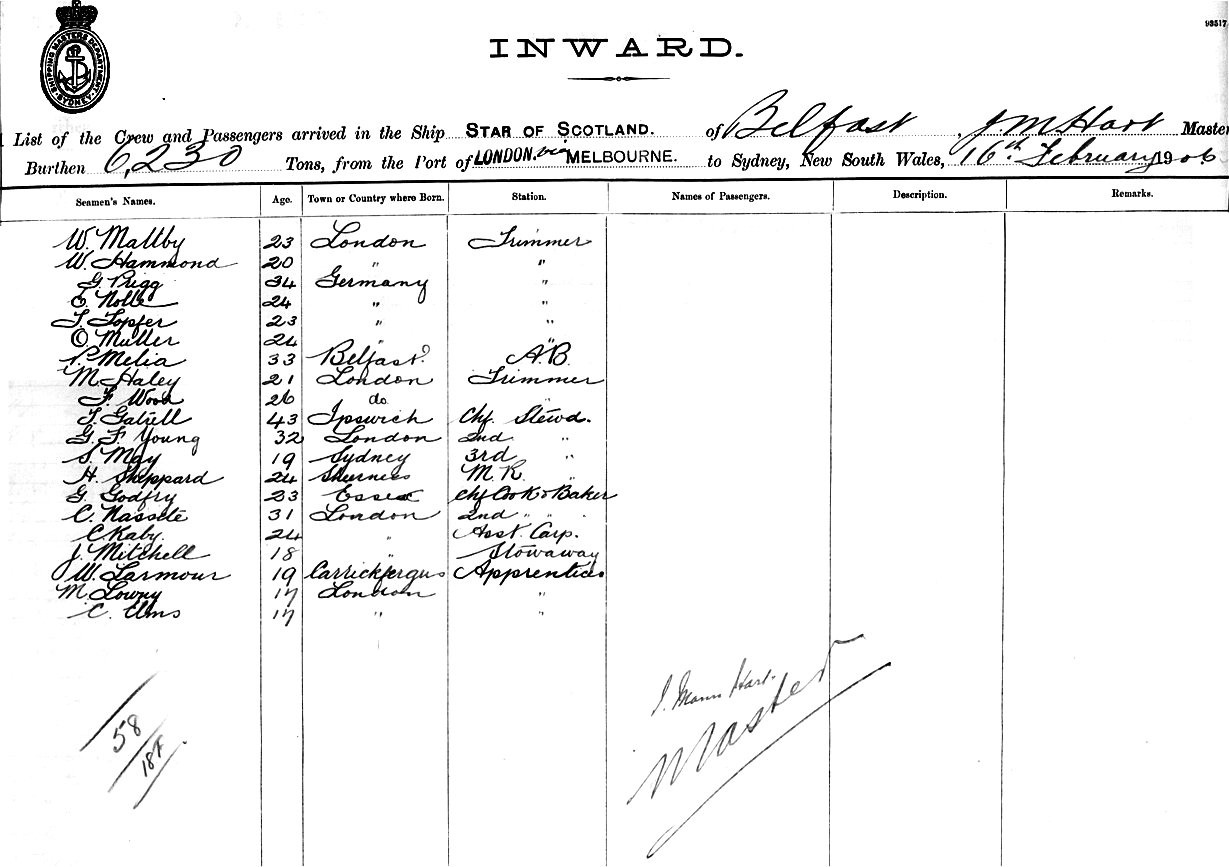 93517
SHIPPING MASTERS DEPARTMENT
SYDNEY
INWARD.
List of the Crew and Passengers arrived in the Ship STAR OF SCOTLAND. of Belfast, J. M. Hart Master
Burthen 6,230 Tons, from the Port of LONDON. via MELBOURNE. to Sydney, New South Wales, 16th February 1906
Seamen's Names. Age. Town or Country where Born. Station. Names of Passengers. Description. Remarks.
W. Maltby 23 London Trimmer
W. Hammond 20 " "
G. Prigg 34 Germany "
E. Nolle 24 " "
T. Topfer 23 " "
O. Muller 24 "
P. Melia 33 Belfast A.B.
M. Haley 21 London Trimmer
F. Wood 26 do "
T. Gatzell 43 Ipswich Chf. Stewd.
G. F. Young 32 London 2nd "
S. May 19 Sydney 3rd "
H. Sheppard 24 Sheerness M. R. "
G. Godfry 23 Essex Chf Cook & Baker
C. Nassete 31 London 2nd " "
C Kaby. 24 " Asst. Carp.
J. Mitchell 18 " Stowaway
W. Larmour 19 Carrickfergus Apprentices
M. Lowry 17 London "
C. Elms 17 " "
J. Mann Hart.
Master
58